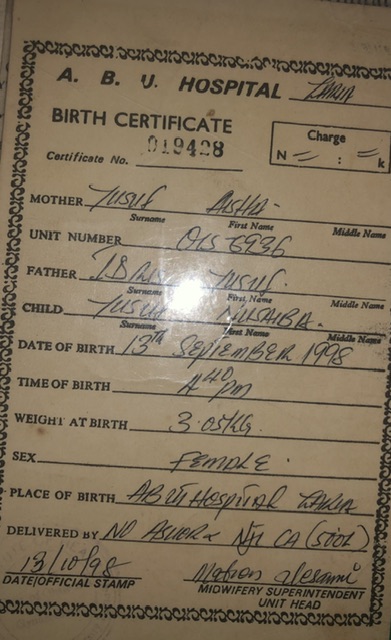 A. B. U. HOSPITAL ZARIA
BIRTH CERTIFICATE
Certificate No. 019428
Charge
N = : = k
MOTHER Yusuf Aisha
Surname First Name Middle Name
UNIT NUMBER 015 6936
FATHER Yusuf
Surname First Name Middle Name
CHILD Yusuf
Surname First Name Middle Name
DATE OF BIRTH 13th SEPTEMBER 1998
TIME OF BIRTH 4 40 pm
WEIGHT AT BIRTH 3.05kg
SEX FEMALE
PLACE OF BIRTH ABU Hospital ZARIA
DELIVERED BY
13/10/98 Matron
DATE/OFFICIAL STAMP MIDWIFERY SUPERINTENDENT
UNIT HEAD